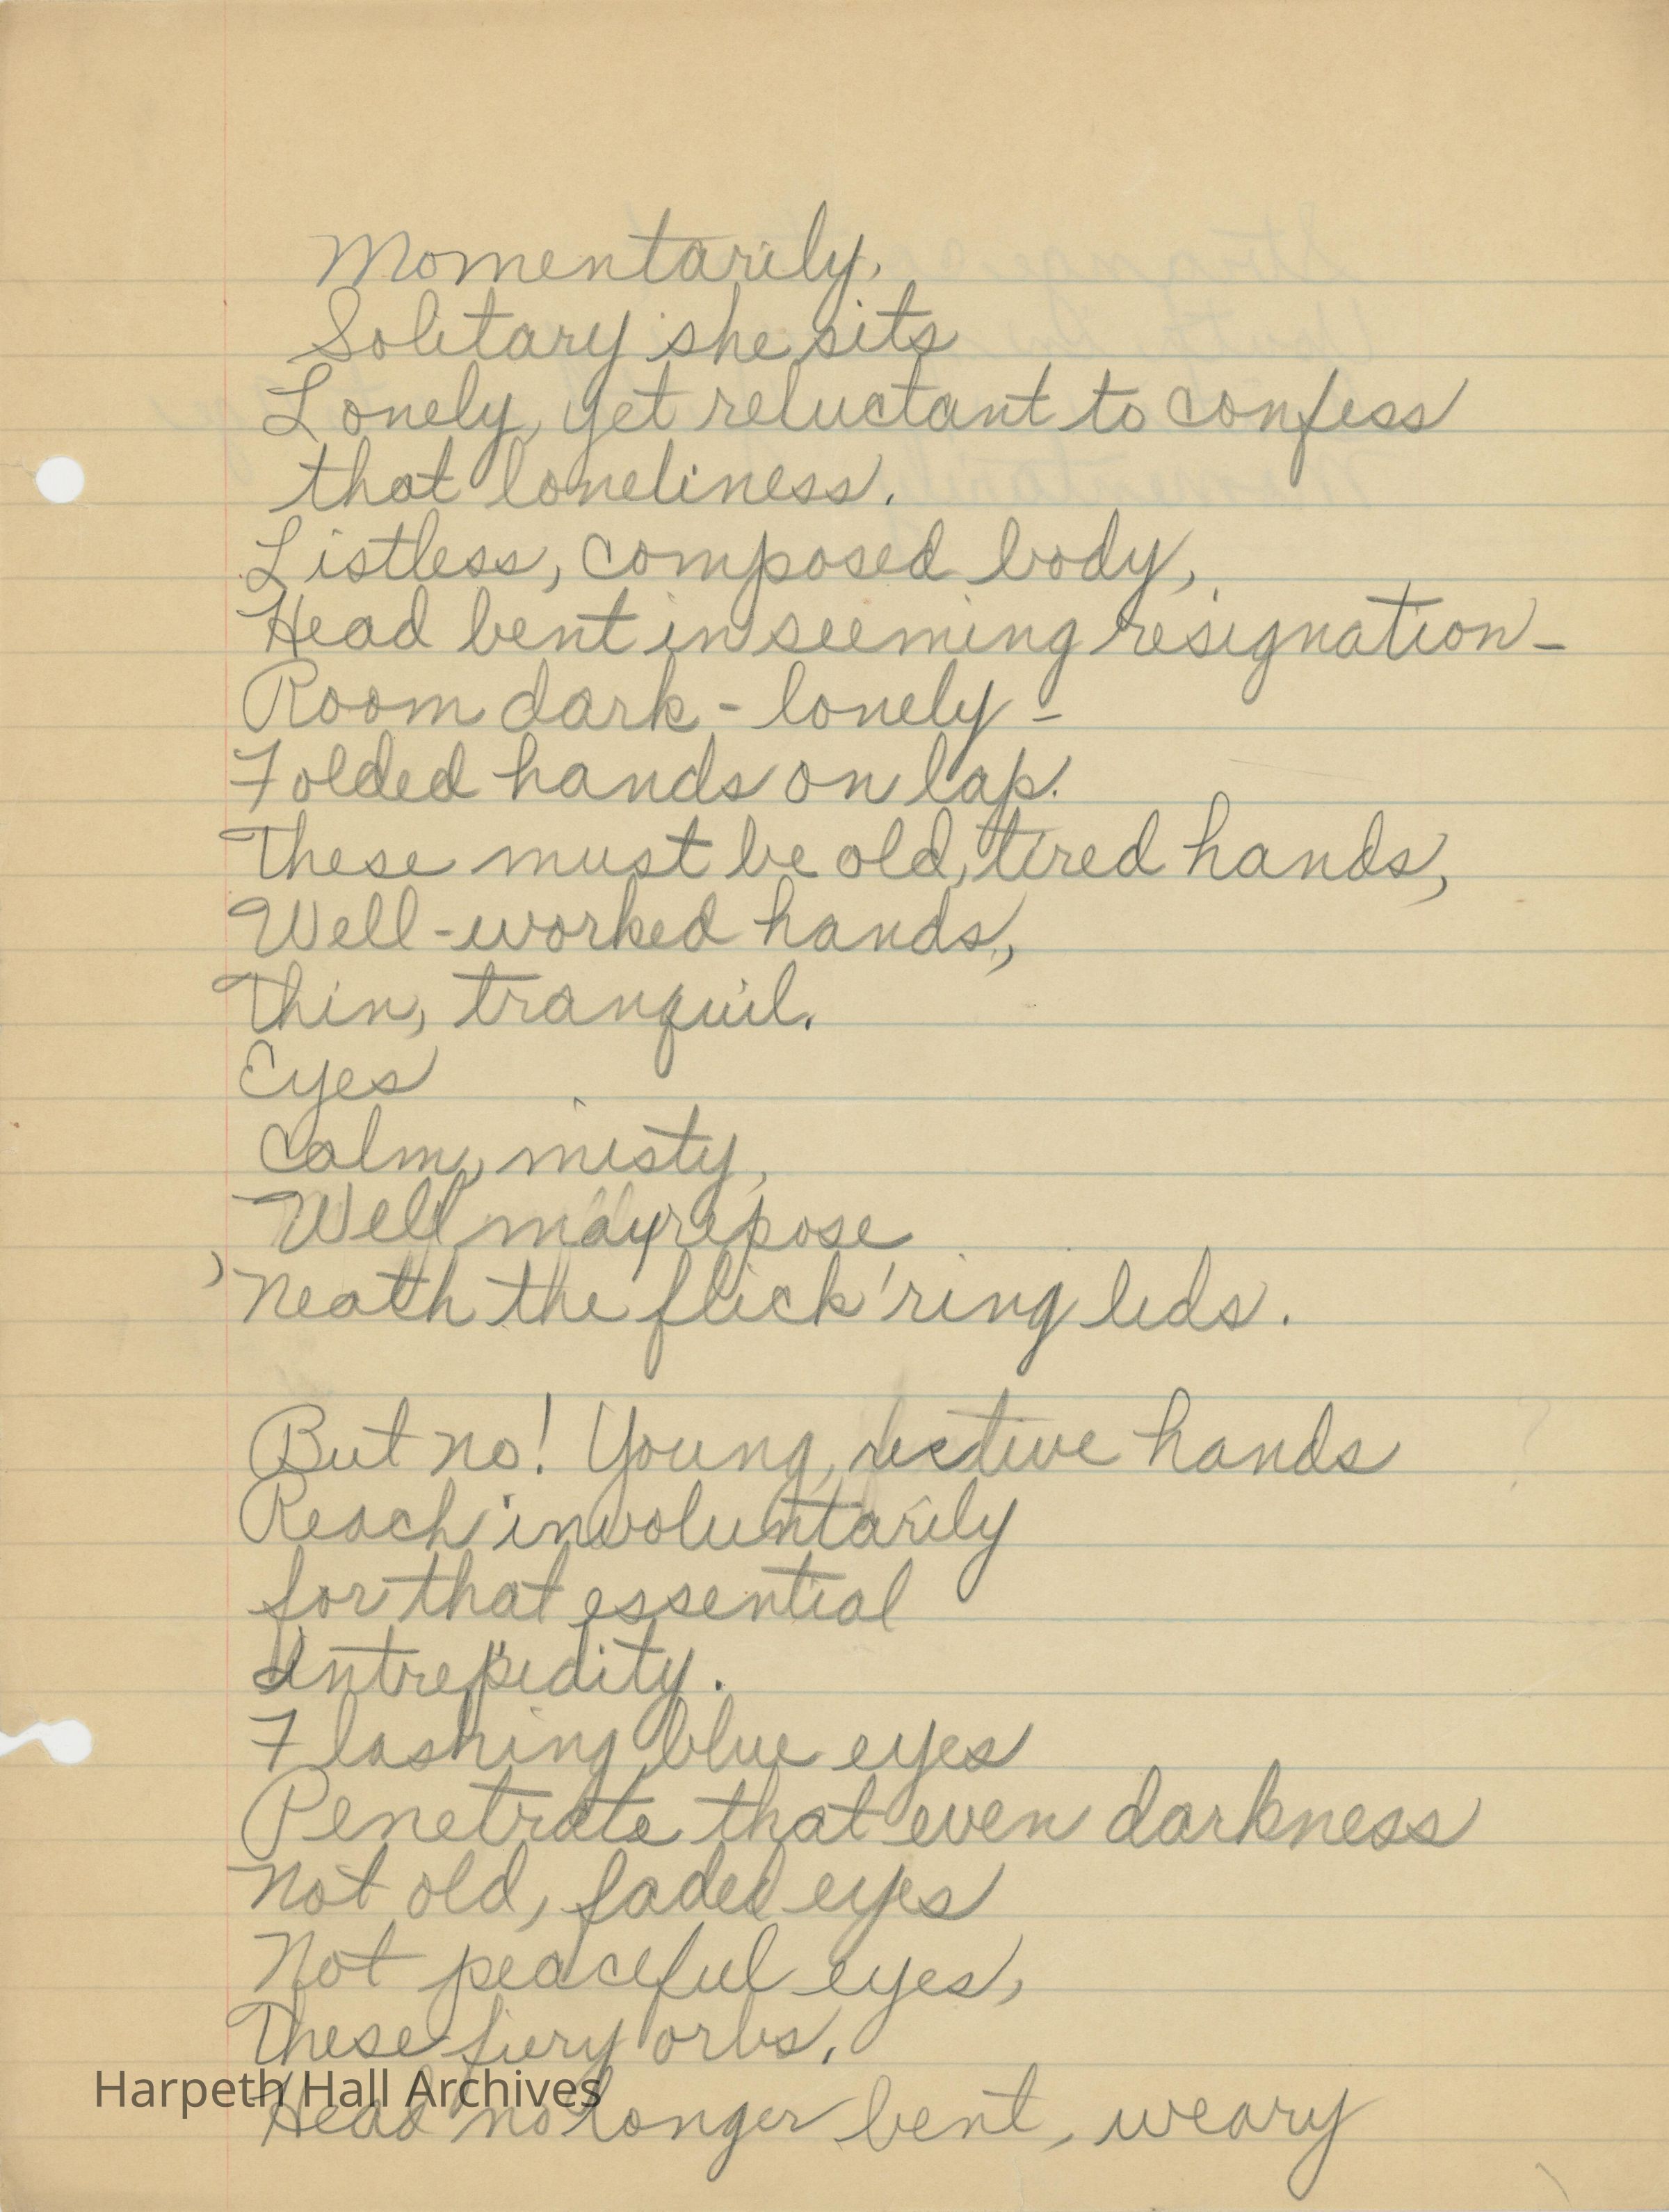 Momentarily.
Solitary she sits
Lonely, yet reluctant to confess
that loneliness.
Listless, composed body,
Head bent in seeming resignation -
Room dark - lonely -
Folded hands on lap.
These must be old, tired hands,
Well-worked hands,
Thin, tranquil.
Eyes
Calm, misty,
Well may repose
'Neath the flick'ring lids.
But no! Young, restive hands
Reach involuntarily
for that essential
Intrepidity.
Flashing blue eyes
Penetrate that even darkness
Not old, faded eyes
Not peaceful eyes,
These fiery orbs.
Harpeth Hall Archives
Head no longer bent, weary